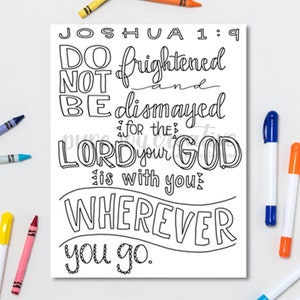 JOSHUA 1:9
DO NOT BE frightened
and
dismayed
for the
LORD your GOD
is with you
WHEREVER
you go.